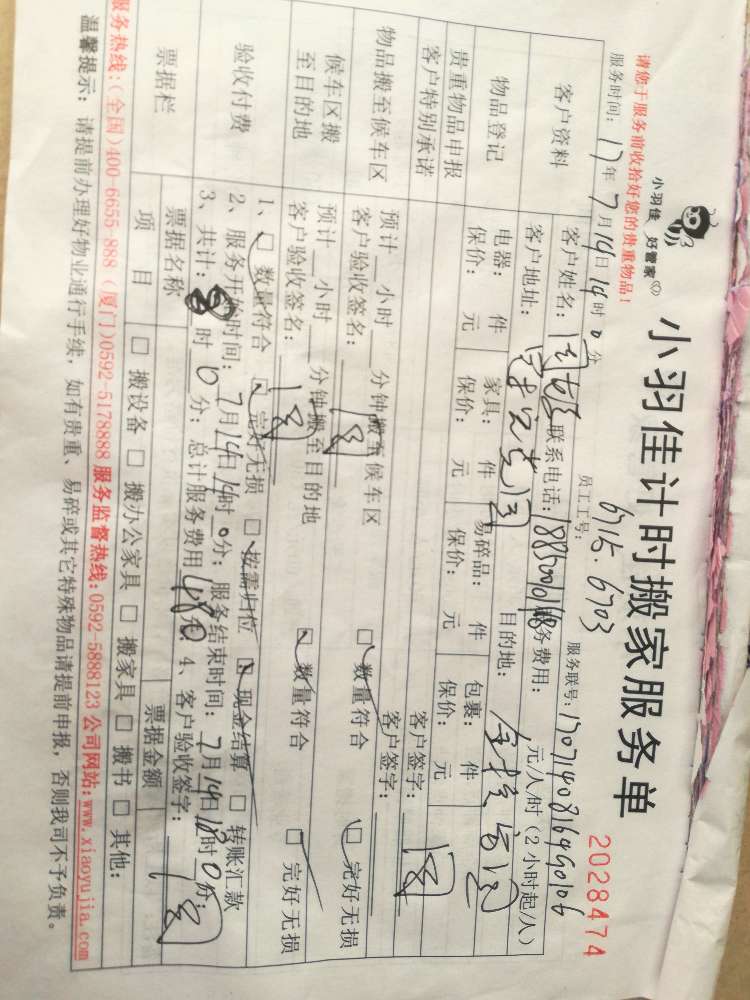 小羽佳 好管家
小羽佳计时搬家服务单
2028474
请您于服务前收拾好您的贵重物品！
员工工号：6715.6703
服务时间：17年7月14日14时0分
服务联号：
客户资料
客户姓名：
联系电话：
服务费用： 元/人/时（2小时起/人）
客户地址：
目的地：
物品登记
电器： 件 家具： 件 易碎品： 件 包裹： 件
保价： 元 保价： 元 保价： 元 保价： 元
贵重物品申报
客户特别承诺
客户签字：
物品搬至候车区
预计 小时 分钟搬至候车区
☐ 数量符合 ☐ 完好无损
客户验收签名：
候车区搬至目的地
预计 小时 分钟搬至目的地
☐ 数量符合 ☐ 完好无损
客户验收签名：
验收付费
1、☐ 数量符合 ☐ 完好无损 ☐ 按需归位 ☐ 现金结算 ☐ 转账汇款
2、服务开始时间：7月14日14时0分；服务结束时间：7月14日18时0分；
3、共计： 时0分；总计服务费用480元 4、客户验收签字：
票据栏
票据名称
票据金额
项 目
☐ 搬设备 ☐ 搬办公家具 ☐ 搬家具 ☐ 搬书 ☐ 其他：
服务热线：(全国)400-6655-888 (厦门)0592-5178888 服务监督热线：0592-5888123 公司网站：www.xiaoyujia.com
温馨提示：请提前办理好物业通行手续，如有贵重、易碎或其它特殊物品请提前申报，否则我司不予负责。